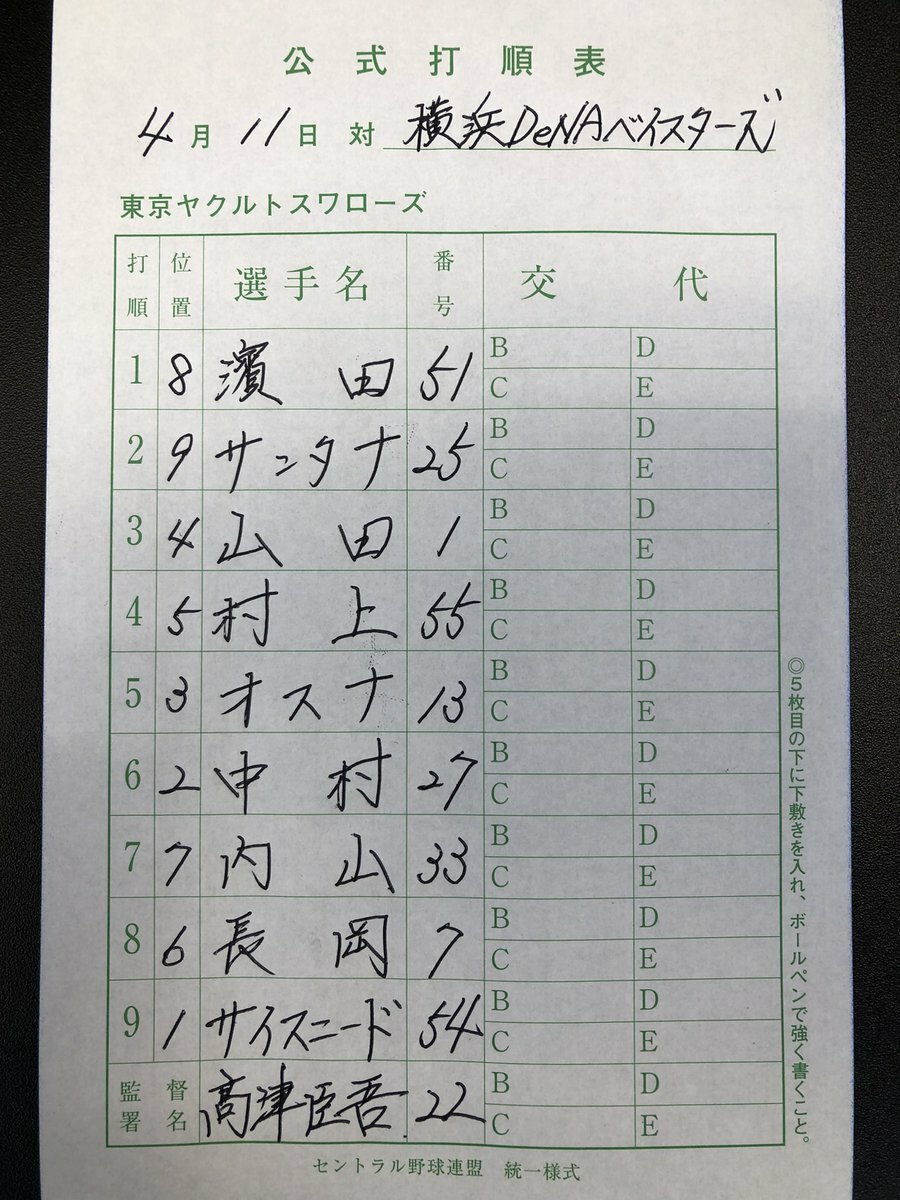 公式打順表
4月11日 対 横浜DeNAベイスターズ
東京ヤクルトスワローズ
打順 位置 選手名 番号 交代
1 8 濱田 51 B D
C E
2 9 サンタナ 25 B D
C E
3 4 山田 1 B D
C E
4 5 村上 55 B D
C E
5 3 オスナ 13 B D
C E
6 2 中村 27 B D
C E
7 7 内山 33 B D
C E
8 6 長岡 7 B D
C E
9 1 サイスニード 54 B D
C E
監督署名 髙津臣吾 22 B D
C E
◎5枚目の下に下敷きを入れ、ボールペンで強く書くこと。
セントラル野球連盟 統一様式